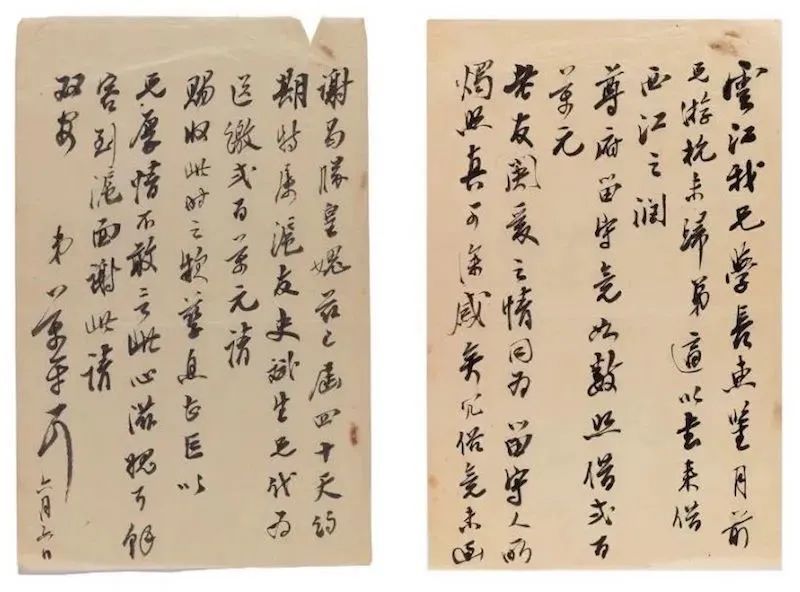 雲江我兄學長惠鑒月前
兄游杭未歸弟適以書來借
西江之潤
尊府留守竟如數照借弍百
萬元
老友關愛之情同為留守人所
燭照真可深感矣冗俗竟未函
謝曷勝皇媿茲已屆四十天約
期特屬滬友史生兄代為
送繳弍百萬元請
賜收此時之款孳息甚巨以
兄厚情不敢言此心滋媿耳餘
容到滬面謝此請
双安
弟 六月六日